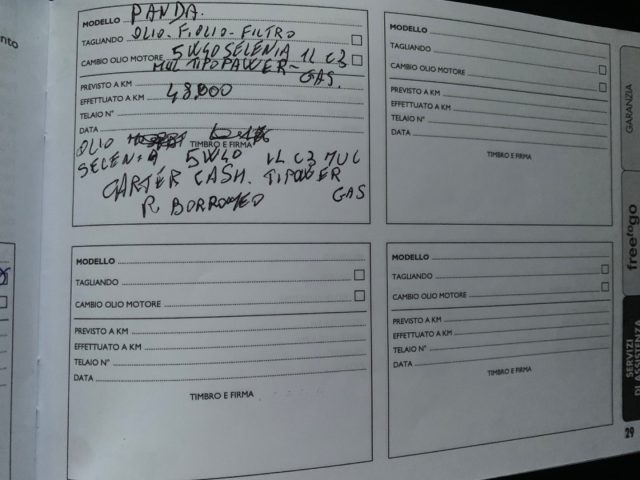 MODELLO PANDA.
TAGLIANDO OLIO-FIOLIO-FILTRO
CAMBIO OLIO MOTORE 5W40 SELENIA 1L C3
MUL TIPOPAWER-
GAS.
PREVISTO A KM
EFFETTUATO A KM 48.000
TELAIO N°
DATA
OLIO
TIMBRO E FIRMA
SELENIA 5W40 1L C3 MUL
CARTER CASH. TIPOWER
R BORROMEO GAS
MODELLO
TAGLIANDO
CAMBIO OLIO MOTORE
PREVISTO A KM
EFFETTUATO A KM
TELAIO N°
DATA
TIMBRO E FIRMA
MODELLO
TAGLIANDO
CAMBIO OLIO MOTORE
PREVISTO A KM
EFFETTUATO A KM
TELAIO N°
DATA
TIMBRO E FIRMA
MODELLO
TAGLIANDO
CAMBIO OLIO MOTORE
PREVISTO A KM
EFFETTUATO A KM
TELAIO N°
DATA
TIMBRO E FIRMA
GARANZIA
freetogo
SERVIZI
DI ASSISTENZA
29